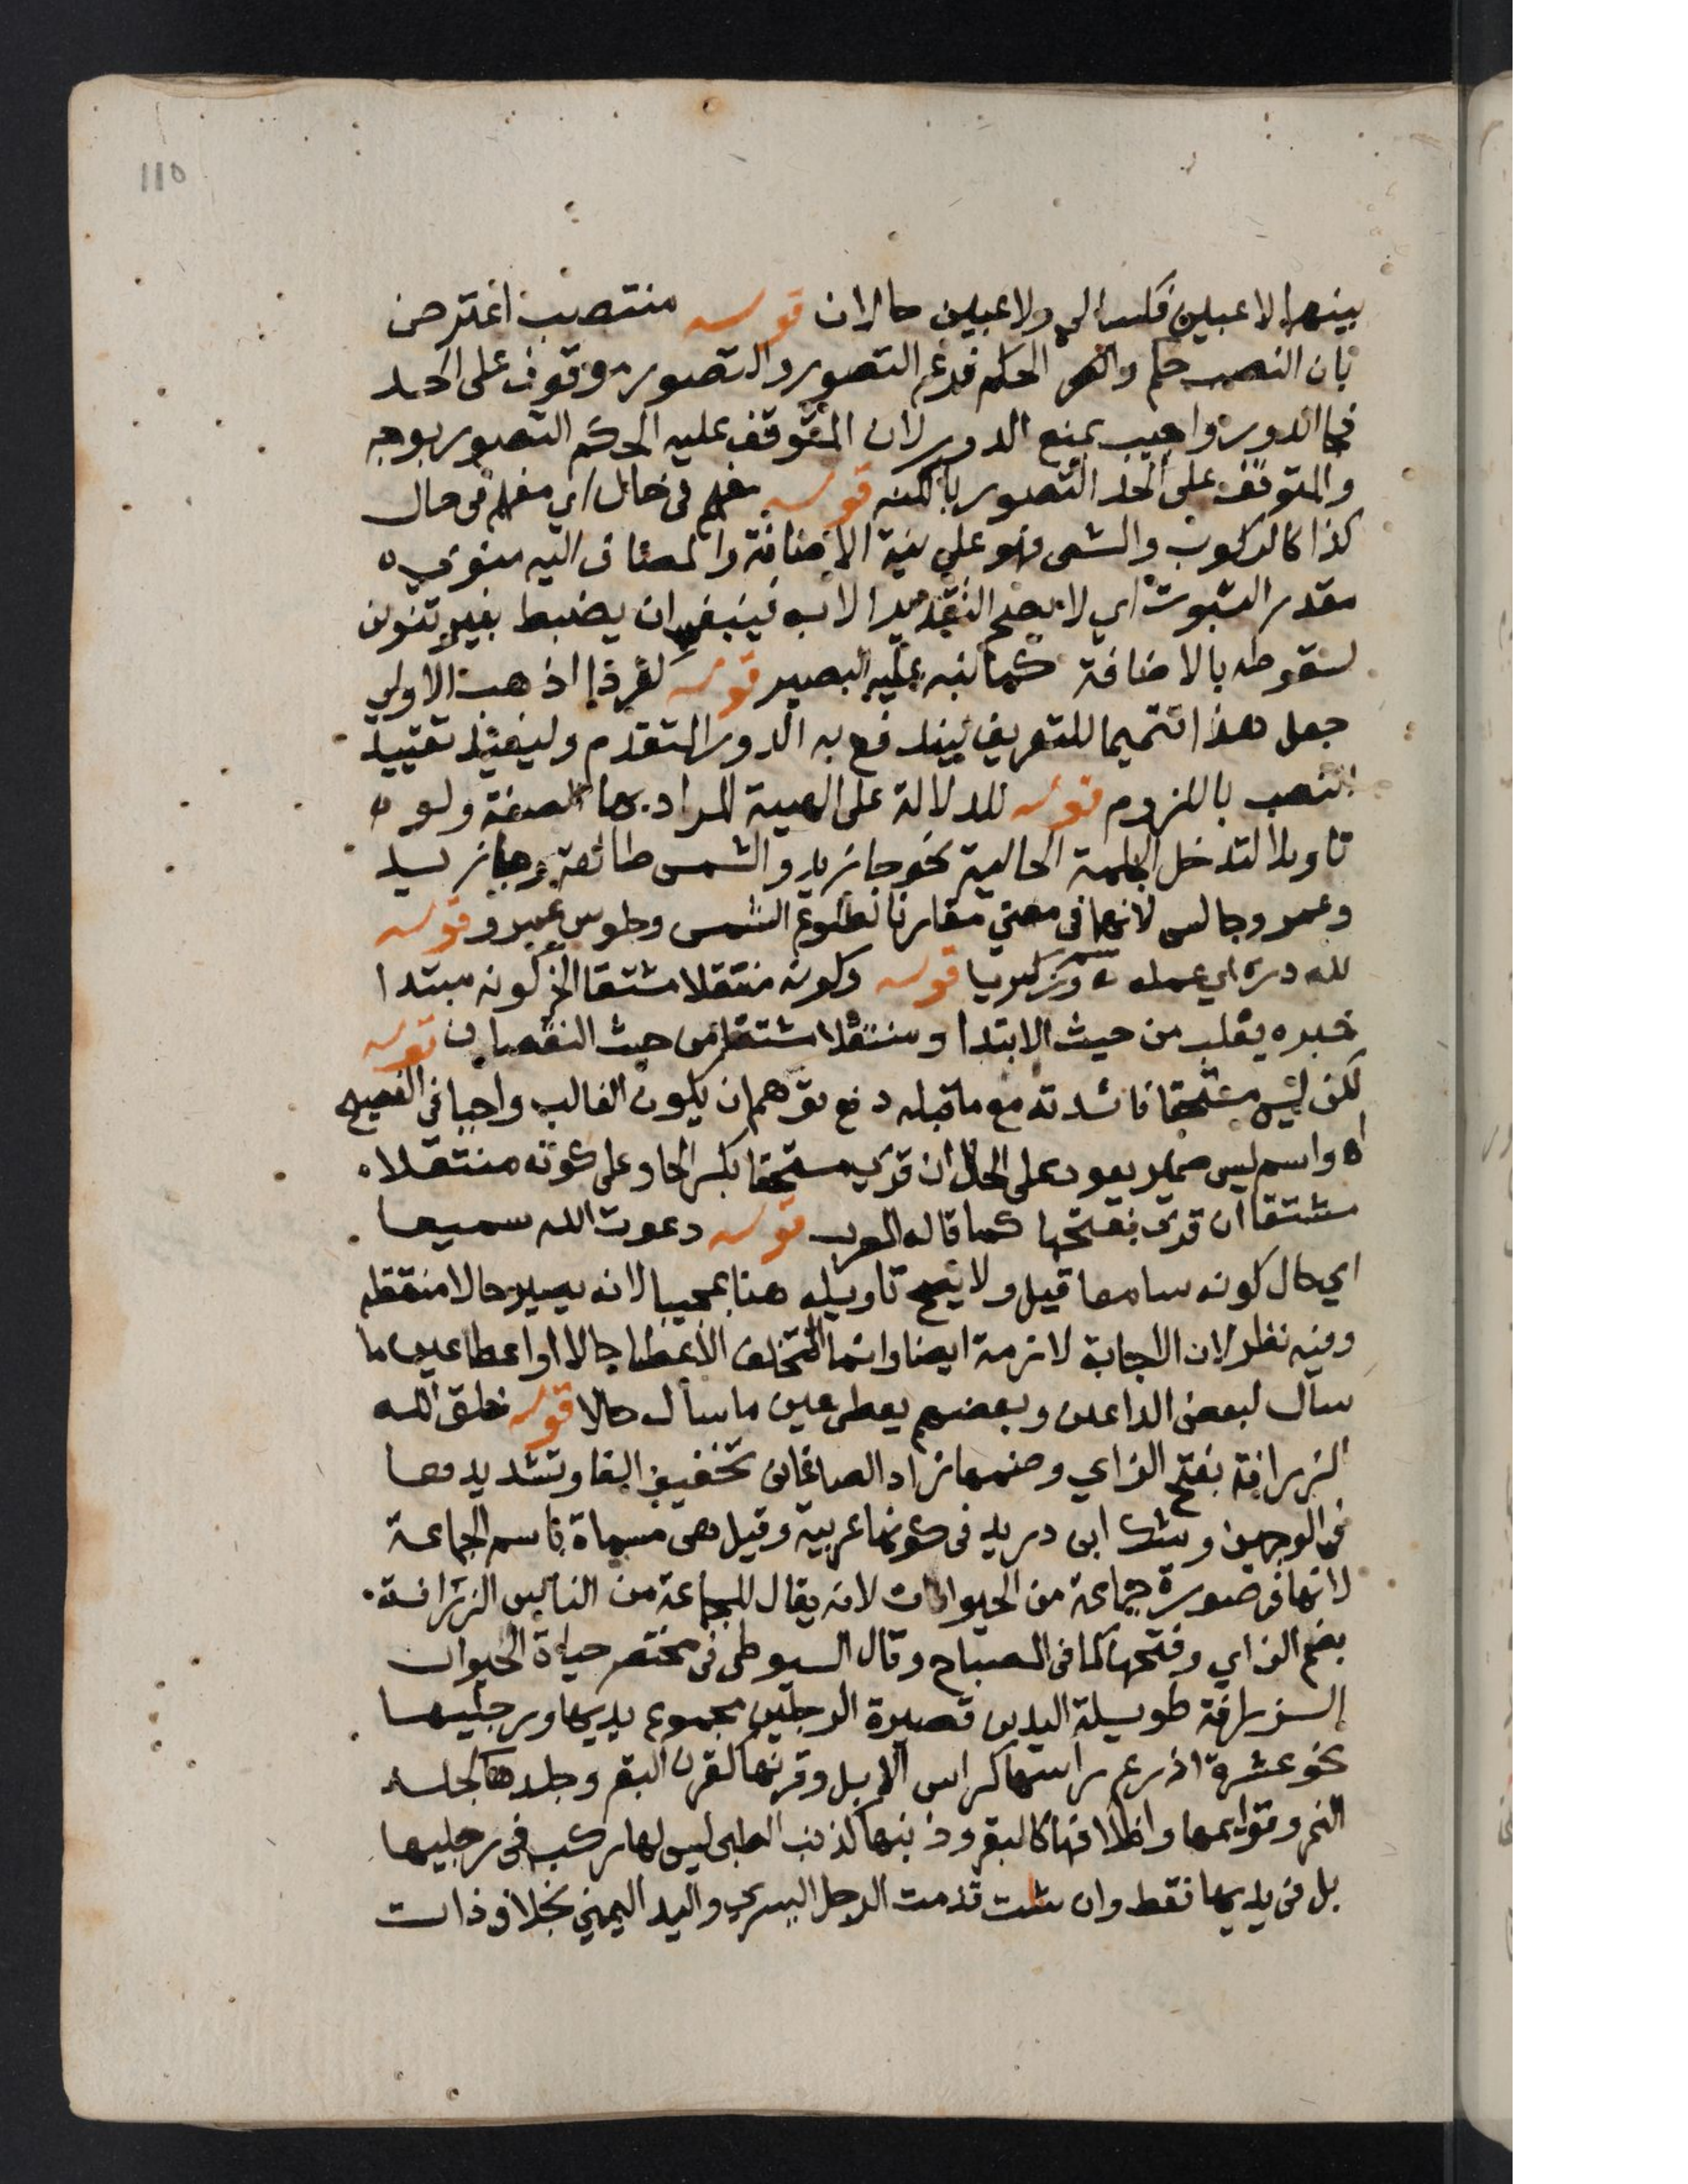 115
بينهما لاعبين فكسا الي ولاعبين حالان قوله منتصب اعترض
بان النصب حكم والحكم فرع التصور والتصور موقوف على الحد
فجا الدور واجيب بمنع الدور لان المتوقف عليه الحكم التصور بوجه
والمتوقف على الحد التصور بالكنه قوله مفهم في حال اي مفهم في حال
كذا كالركوب والشمي فهو على نية الاضافة والمضاف اليه منوي
مقدر الثبوت اي لا يصح التقدير الا به فينبغي ان يضبط بغير تنوين
لسقوطه بالاضافة كما نبه عليه البصير قوله كفردا اذهب الاولي
جعل هذا تتميما للتعريف ليندفع به الدور المتقدم وليفيد تقييد
النصب باللزوم قوله للدلالة على الهيية المراد بها الصفة ولو
تاويلا لتدخل الجملة الحالية نحو جا زيد والشمس طالعة وجا زيد
وعمرو جالس لانهما في معني مقارنا لطلوع الشمس وجلوس عمرو قوله
لله دره اي عمله زكريا قوله وكونه منتقلا مشتقا الخ كونه مبتدا
خبره يغلب من حيث الابتدا ومنتقلا مشتقا من حيث النقصان قوله
لكن ليس مستحقا فائدته مع ما قبله دفع توهم ان يكون الغالب واجبا في الفصيح
اه واسم ليس ضمير يعود على الحال ان قري مستحقا بكسر الحا وعلى كونه منتقلا
مشتقا ان قري بفتحها كما قاله المعرب قوله دعوت الله سميعا
اي حال كونه سامعا قيل ولا يصح تاويله هنا بمجيبا لانه يصير حالا منتقلة
وفيه نظر لان الاجابة لازمة ايضا وانما المتخلف الاعطا حالا او اعطا عين ما
سال لبعض الداعين وبعضهم يعطى عين ما سال حالا قوله خلق الله
الزرافة بفتح الزاي وضمها زاد الصاغاني تخفيف الفا وتشديدها
في الوجهين وشك ابن دريد في كونها عربية وقيل هي مسماة باسم الجماعة
لانها في صورة جماعة من الحيوانات لانه يقال للجماعة من الناس الزرافة
بضم الزاي وفتحها كما في المصباح وقال السيوطي في مختصر حياة الحيوان
الزرافة طويلة اليدين قصيرة الرجلين مجموع يديها ورجليها
نحو عشرة اذرع راسها كراس الابل وقرنها كقرن البقر وجلدها كجلد
النمر وقوايمها واظلافها كالبقر وذنبها كذنب الظبي ليس لها ركب في رجليها
بل في يديها فقط وان مشت قدمت الرجل اليسري واليد اليمني بخلاف ذات